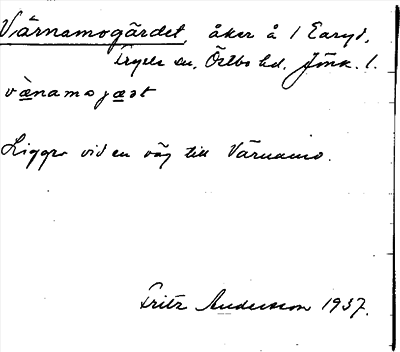 Värnamogärdet, åker å 1 Earyd,
Tryele sn, Östbo hd. Jönk. l.
vä̲namojä̲st
Ligger vid en väg till Värnamo.
Fritz Andersson 1937.